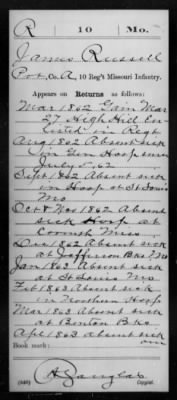 R 10 Mo.
James Russell
Pvt., Co. A, 10 Reg't Missouri Infantry.
Appears on Returns as follows:
Mar 1862 Gain Mar
27 High Hill En-
listed in Regt
Aug 1862 Absent sick
in Gen Hosp since
July 5, 62
Sept 1862 Absent sick
in Hosp at St Louis
Mo
Oct & Nov 1862 Absent
sick Hosp at
Corinth Miss
Dec 1862 Absent sick
at Jefferson Bks Mo
Jan 1863 Absent sick
at St Louis Mo
Feb 1863 Absent sick
in Northern Hosp
Mar 1863 Absent sick
at Benton Bks
Apl 1863 absent sick
Book mark:
(546) Copyist.